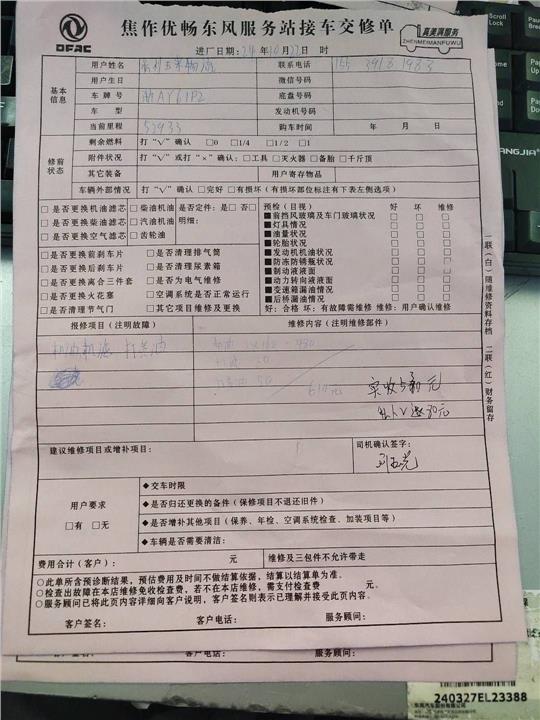 DFAC
焦作优畅东风服务站接车交修单
真美满服务
ZHENMEIMANFUWU
进厂日期：24年10月27日 时
用户姓名 联系电话 155 3918 1983
基本信息
用户生日 微信号码
车牌号 底盘号码
车型 发动机号码
当前里程 52933 购车时间 年 月 日
修前状态
剩余燃料 打“√”确认 □0 □1/4 □1/2 □1
附件状况 打“√”或打“×”确认：□工具 □灭火器 □备胎 □千斤顶
其它装备 用户寄存物品
车辆外部情况 打“√”确认 □完好 □有损坏（有损坏部位标注有下表左侧选项）
□是否更换机油滤芯 □柴油机油 □是否定件：是□ 否□
□是否更换柴油滤芯 □汽油机油 明细：
□是否更换空气滤芯 □齿轮油
□是否更换前刹车片 □是否清理排气筒
□是否更换后刹车片 □是否清理尿素箱
□是否更换离合三件套 □是否为电气维修
□是否更换火花塞 □空调系统是否正常运行
□是否清理节气门 □其它项目维修及更换
预检（目视） 好 坏 维修
■前挡风玻璃及车门玻璃状况 □ □ □
■灯具情况 □ □ □
■油量状况 □ □ □
■轮胎状况 □ □ □
■发动机机油状况 □ □ □
■防冻防锈瓶状况 □ □ □
■制动液液面 □ □ □
■动力转向液液面 □ □ □
■变速箱漏油情况 □ □ □
■后桥漏油情况 □ □ □
好：合格 坏：有故障需维修 维修：用户确认维修
报修项目（注明故障） 维修内容（注明维修部件）
机油机滤 打黄油
610元
实收5
建议维修项目或增补项目：
司机确认签字：
用户要求
□有 □无
◆交车时限
◆是否归还更换的备件（保修项目不退还旧件）
◆是否增补其他项目（保养、年检、空调系统检查、加装项目等）
◆车辆是否需要清洁：
费用合计（客户）： 元 维修及三包件不允许带走
○此单所含预诊断结果，预估费用及时间不做结算依据，结算以结算单为准。
○检查出故障在本店维修免收检查费，若不在本店维修，需支付检查费 元。
○服务顾问已将此页内容详细向客户说明，客户签名则表示已理解并接受此页内容。
客户签名： 客户电话： 服务顾问：
二联（白）随维修资料存档 二联（红）财务留存
客户签名： 客户电话： 服务顾问：
240327EL23388
Pause
Page Up
Page Down